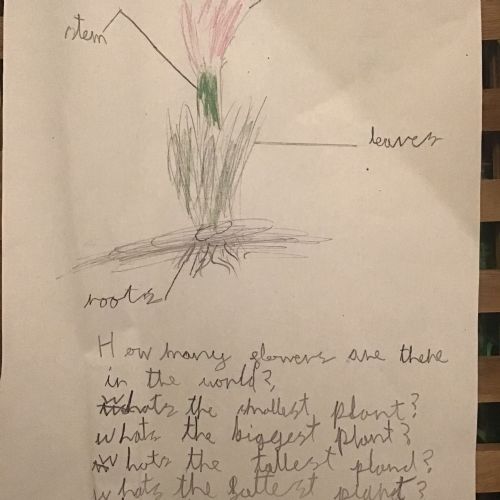 stem
leaves
roots
How many flowers are there
in the world?,
whats the smallest plant?
whats the biggest plant?
whats the tallest pland?
whats the fattest plant?